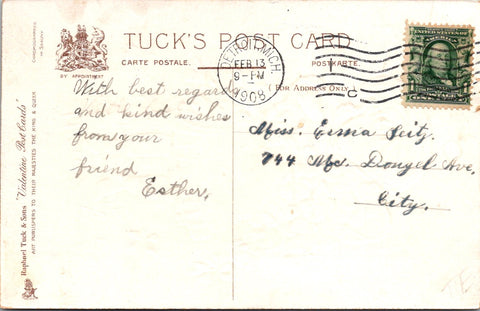 TUCK'S POST CARD
CARTE POSTALE.
POSTKARTE.
BY APPOINTMENT
(FOR ADDRESS ONLY)
CHROMOGRAPHED
IN SAXONY
Raphael Tuck & Sons' "Valentine Post Cards"
ART PUBLISHERS TO THEIR MAJESTIES THE KING & QUEEN
DETROIT, MICH.
FEB 13
9-PM
1908
UNITED STATES OF
With best regards
and kind wishes
from your
friend
Esther,
Miss. Erma Seitz.
744 Mc. Dougel Ave,
City.